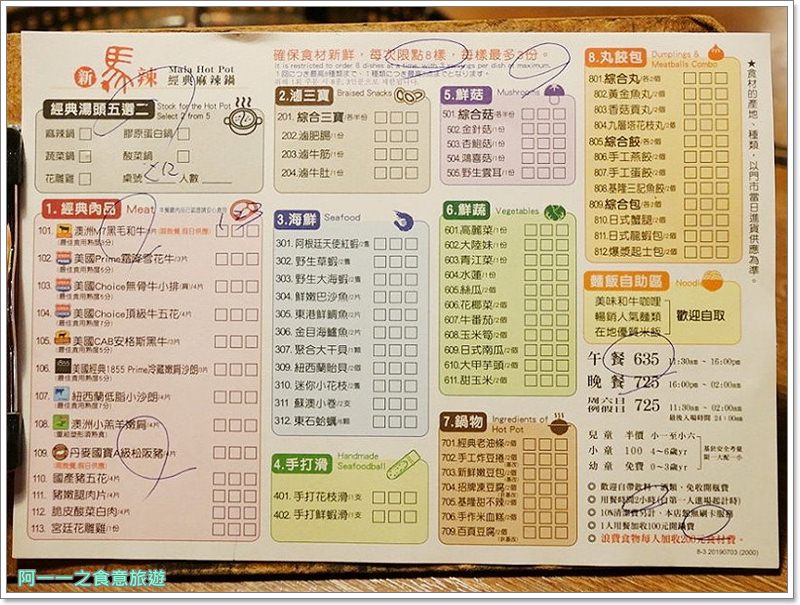 新 馬辣
Mala Hot Pot
經典麻辣鍋
確保食材新鮮，每次限點8樣，每樣最多3份。
It is restricted to order 8 dishes at a time with 3 servings per dish at maximum.
經典湯頭五選二
Stock for the Hot Pot
Select 2 from 5
麻辣鍋 膠原蛋白鍋
蔬菜鍋 酸菜鍋
花雕雞 桌號 212 人數
1. 經典肉品 Meat
101. 澳洲M7黑毛和牛
102. 美國Prime霜降雪花牛/3片
(最佳食用熟度5分)
103. 美國Choice無骨牛小排
104. 美國Choice頂級牛五花/4片
(最佳食用熟度7分)
105. 美國CAB安格斯黑牛/3片
106. 美國經典1855 Prime冷藏嫩肩沙朗
107. 紐西蘭低脂小沙朗/4片
108. 澳洲小羔羊嫩肩/4片
109. 丹麥國寶A級松阪豬/4片
110. 國產豬五花/4片
111. 豬嫩腿肉片/4片
112. 脆皮酸菜白肉/4片
113. 宮廷花雕雞/1份
2. 滷三寶 Braised Snacks
201. 綜合三寶/各半份
202. 滷肥腸/1份
203. 滷牛筋/1份
204. 滷牛肚/1份
3. 海鮮 Seafood
301. 阿根廷天使紅蝦/2隻
302. 野生草蝦/2隻
303. 野生大海蝦/2隻
304. 鮮嫩巴沙魚/2片
305. 東港鮮鯛魚/2片
306. 金目海鱺魚/2片
307. 聚合大干貝/1顆
309. 紐西蘭貽貝/2個
310. 迷你小花枝/2隻
311. 蘇澳小卷/2支
312. 東石蛤蠣/6顆
4. 手打滑 Handmade Seafoodball
401. 手打花枝滑/1支
402. 手打鮮蝦滑/1支
5. 鮮菇 Mushrooms
501. 綜合菇/各半份
502. 金針菇/1份
503. 杏鮑菇/1份
504. 鴻喜菇/1份
505. 野生雲耳/1份
6. 鮮蔬 Vegetables
601. 高麗菜/1份
602. 大陸妹/1份
603. 青江菜/1份
604. 水蓮/1份
605. 絲瓜/2個
606. 花椰菜/2個
607. 牛番茄/2個
608. 玉米筍/2個
609. 日式南瓜/2個
610. 大甲芋頭/2個
611. 甜玉米/2個
7. 鍋物 Ingredients of Hot Pot
701. 經典老油條/2個
702. 手工炸豆捲/2個
703. 新鮮嫩豆包/2個
704. 招牌凍豆腐/2個
705. 基隆甜不辣/2個
706. 手作米血糕/2個
709. 百頁豆腐/2個
8. 丸餃包 Dumplings & Meatballs Combo
801. 綜合丸/各1個
802. 黃金魚丸/2個
803. 香菇貢丸/2個
804. 九層塔花枝丸/2個
805. 綜合餃/各1個
806. 手工燕餃/2個
807. 手工蛋餃/2個
808. 基隆三記魚餃/2個
809. 綜合包/各1個
810. 日式蟹腿/2個
811. 日式龍蝦包/2個
812. 爆漿起士包/2個
★食材的產地、種類，以門市當日進貨供應為準。
麵飯自助區 Noodle
美味和牛咖哩
暢銷人氣麵類
在地優質米飯
歡迎自取
午餐 635 11:30am ~ 16:00pm
晚餐 725 16:00pm ~ 02:00am
週六日 例假日 725 11:30am ~ 02:00am
最後入場時間 24:00am
兒童 半價 小一至小六
小童 100 4~6歲
幼童 免費 0~3歲
◎ 歡迎自帶飲料、酒類，免收開瓶費
◎ 用餐時間2小時(自第一人進場起計時)
◎ 10%清潔費另計，本店恕無刷卡服務
◎ 1人用餐加收100元開鍋費
◎ 浪費食物每人加收200元食材費。
8-3 20190703 (2000)
阿一一之食意旅遊